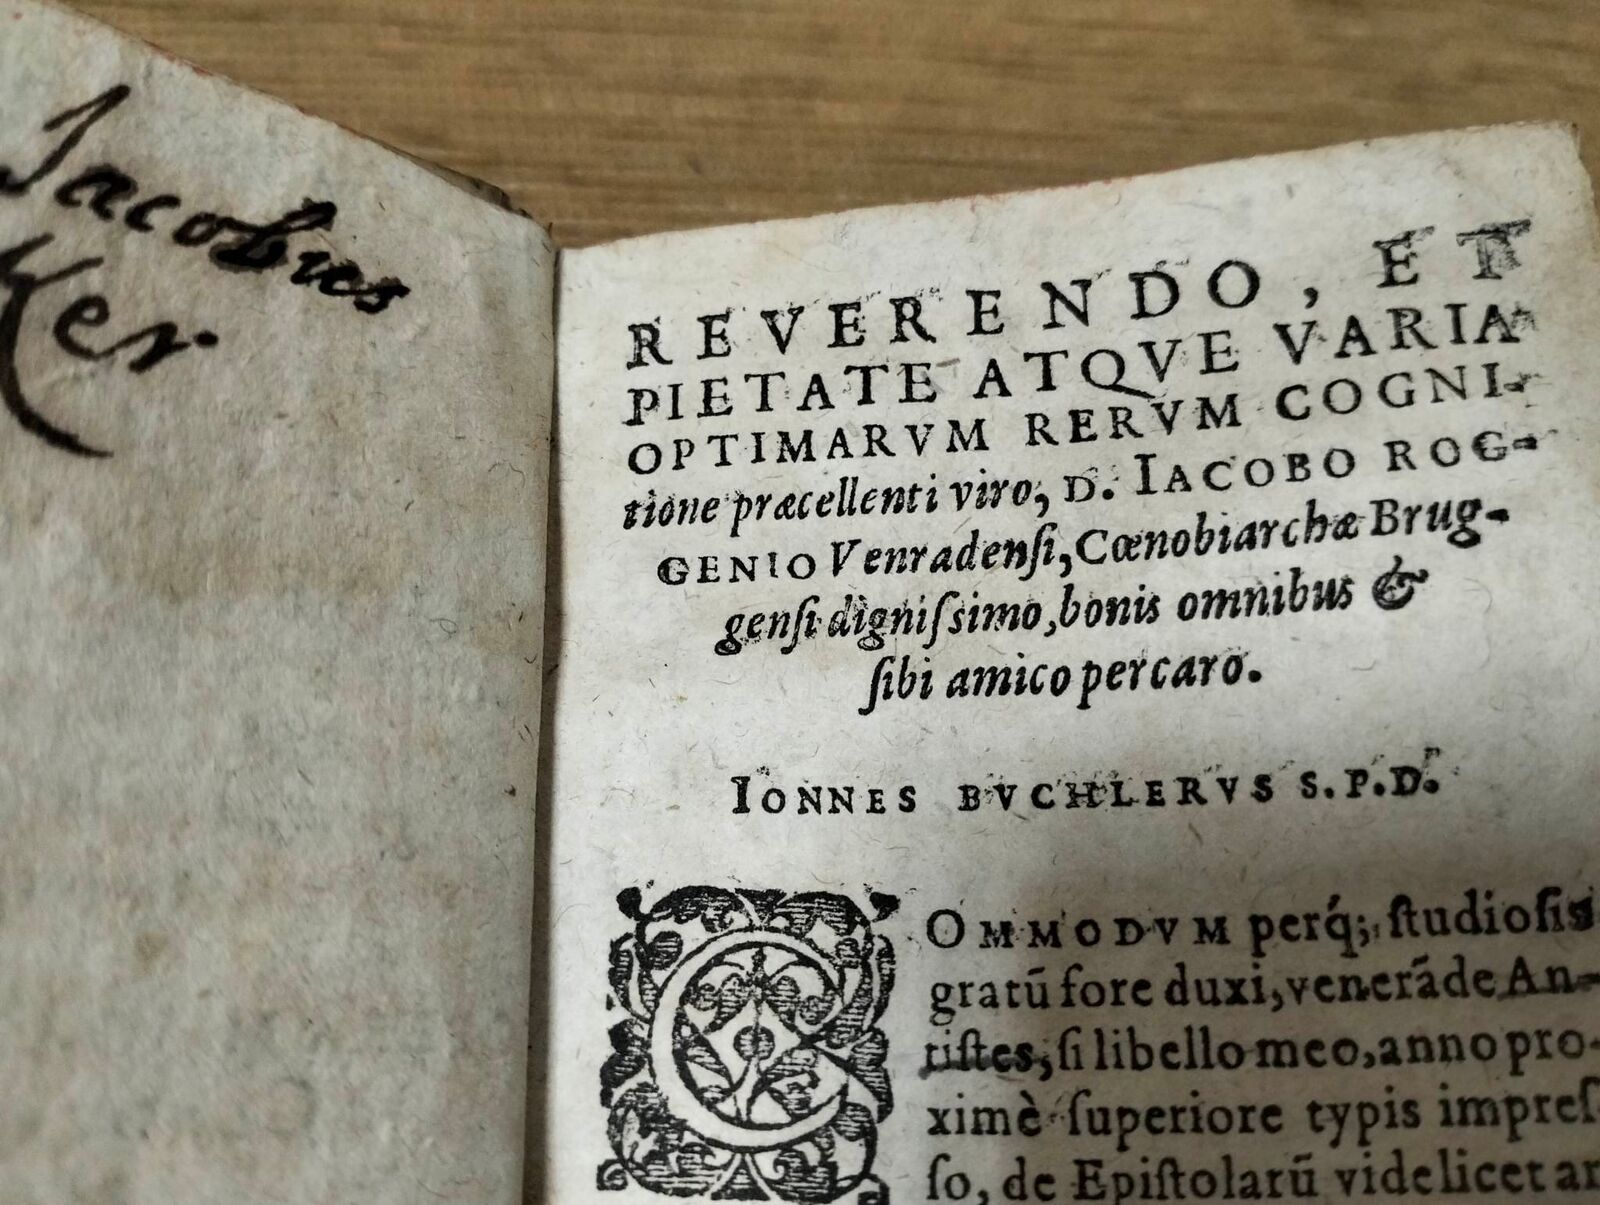 Jacobus
Ker
REVERENDO, ET
PIETATE ATQVE VARIA
OPTIMARVM RERVM COGNI-
tione præcellenti viro, D. IACOBO ROG-
GENIO Venradenſi, Cœnobiarchæ Brug-
genſi digniſsimo, bonis omnibus &
ſibi amico percaro.
IONNES BVCHLERVS S.P.D.
COMMODVM perq́; ſtudioſis
gratū fore duxi, venerãde An-
tiſtes, ſi libello meo, anno pro-
ximè ſuperiore typis impreſ-
ſo, de Epiſtolarū videlicet ar